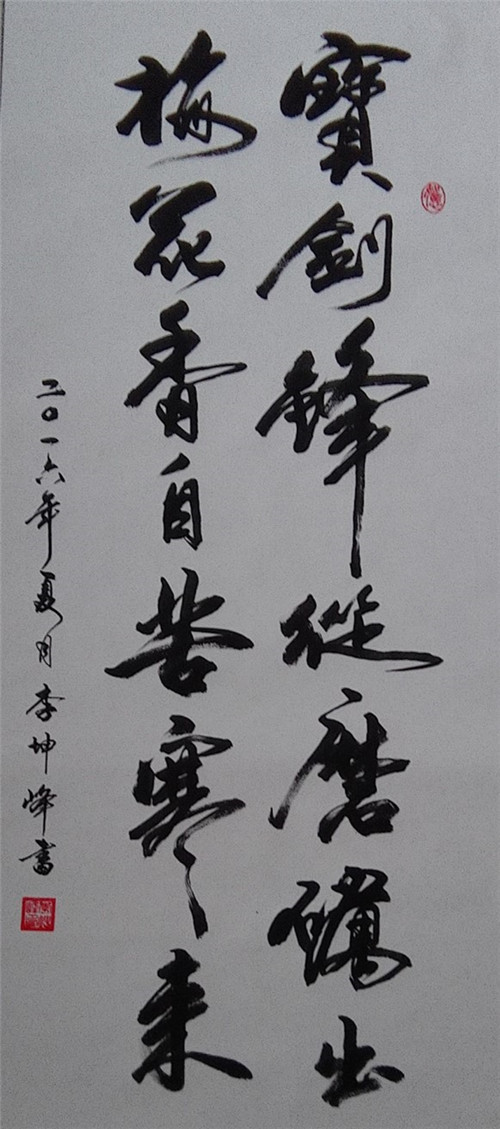 寶劍鋒從磨礪出
梅花香自苦寒來
二〇一六年夏月李坤峰書